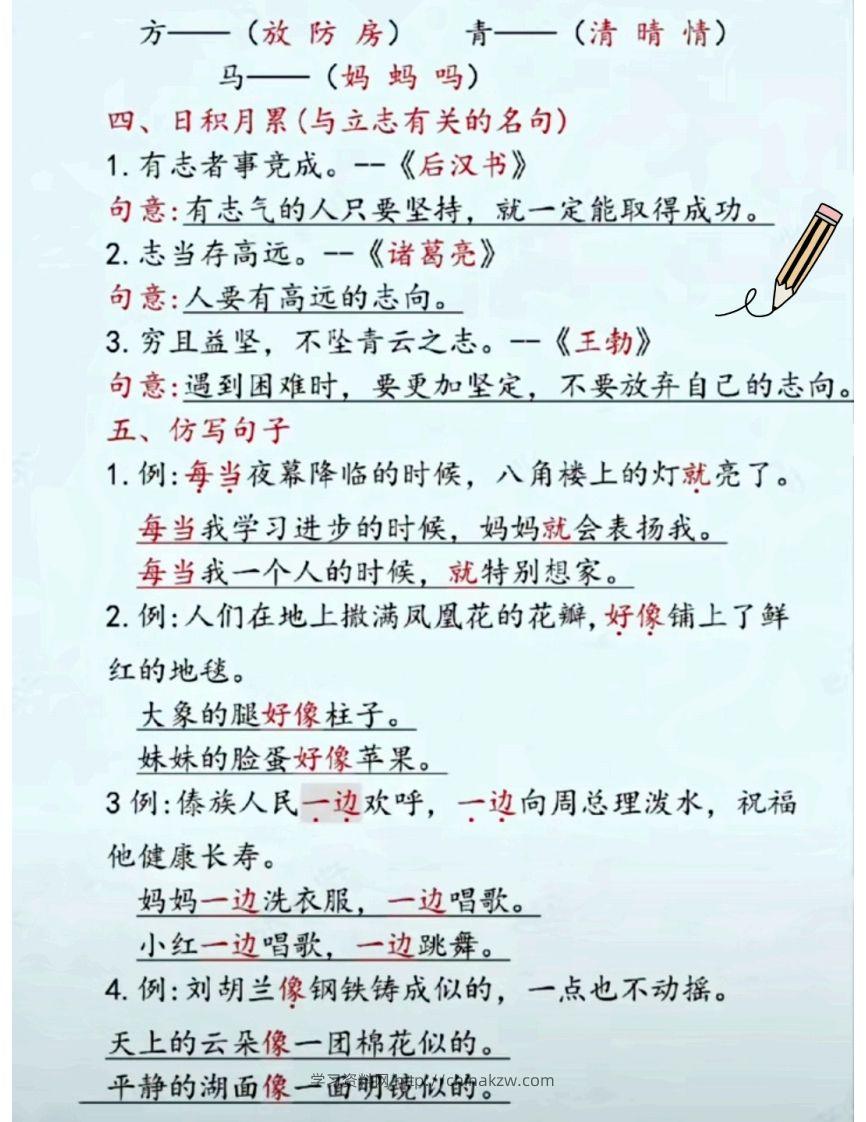 方——（放 防 房） 青——（清 晴 情）
马——（妈 蚂 吗）
四、日积月累(与立志有关的名句)
1.有志者事竞成。--《后汉书》
句意:有志气的人只要坚持，就一定能取得成功。
2.志当存高远。--《诸葛亮》
句意:人要有高远的志向。
3.穷且益坚，不坠青云之志。--《王勃》
句意:遇到困难时，要更加坚定，不要放弃自己的志向。
五、仿写句子
1.例:每当夜幕降临的时候，八角楼上的灯就亮了。
每当我学习进步的时候，妈妈就会表扬我。
每当我一个人的时候，就特别想家。
2.例:人们在地上撒满凤凰花的花瓣,好像铺上了鲜
红的地毯。
大象的腿好像柱子。
妹妹的脸蛋好像苹果。
3例:傣族人民一边欢呼，一边向周总理泼水，祝福
他健康长寿。
妈妈一边洗衣服，一边唱歌。
小红一边唱歌，一边跳舞。
4.例:刘胡兰像钢铁铸成似的，一点也不动摇。
天上的云朵像一团棉花似的。
平静的湖面像一面明镜似的。
学习资料网 http://chinakzw.com